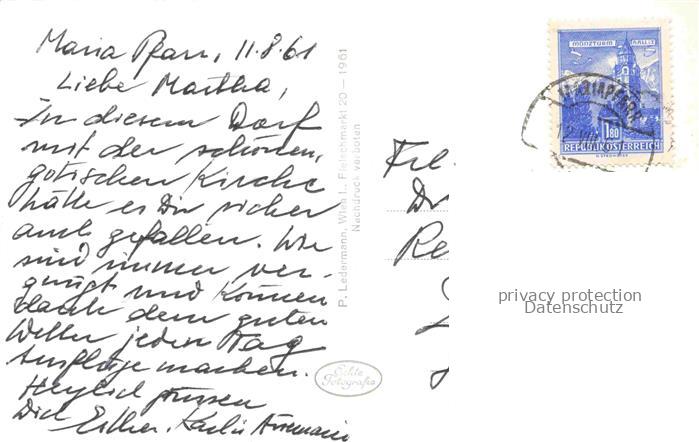 Maria Pfarr, 11.8.61
Liebe Martha,
In diesem Dorf
mit der schönen,
gotischen Kirche
hätte es Dir sicher
auch gefallen. Wir
sind immer ver-
gnügt und können
dank dem guten
Wetter jeden Tag
Ausflüge machen.
Herzlich grüssen
Dich Esther, Karli
P. Ledermann, Wien I., Fleischmarkt 20 — 1961
Nachdruck verboten
Echte
Fotografie
MÜNZTURM HALL i.T.
MARIAPFARR
1.80
REPUBLIK ÖSTERREICH
Frl.
Dr.
Re
privacy protection
Datenschutz